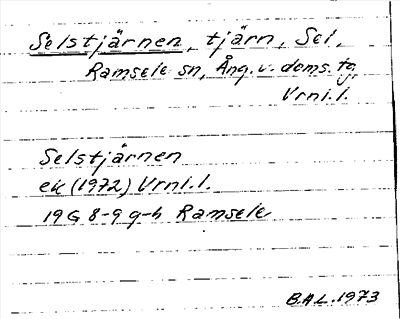 Selstjärnen, tjärn, Sel,
Ramsele sn, Ång. v. doms. tg,
Vrnl.l.
Selstjärnen
ek (1972) Vrnl.l.
19G 8-9 g-h Ramsele
B.A.L. 1973